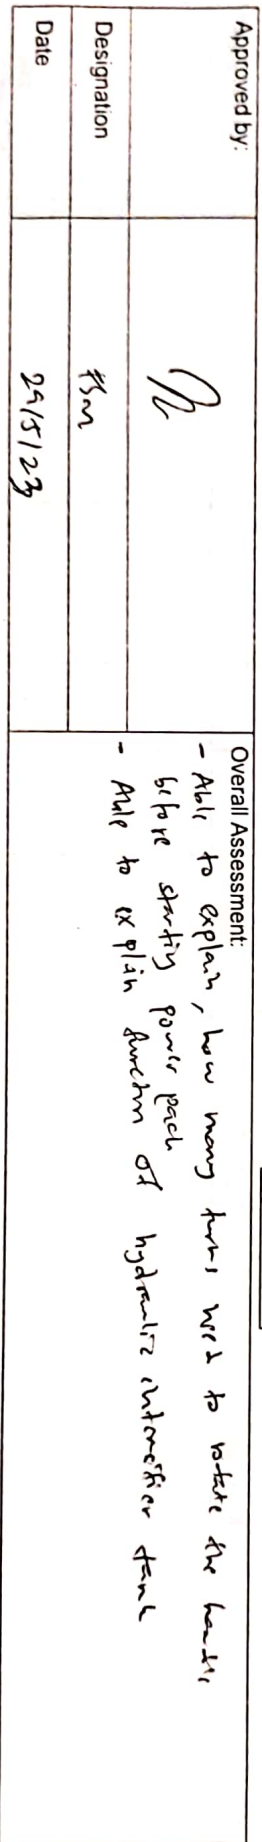 Approved by:
Designation
Date
29/5/23
Overall Assessment:
- Able to explain, how many turns need to rotate the handle
before starting power pack
- Able to explain function of hydraulic intensifier tank